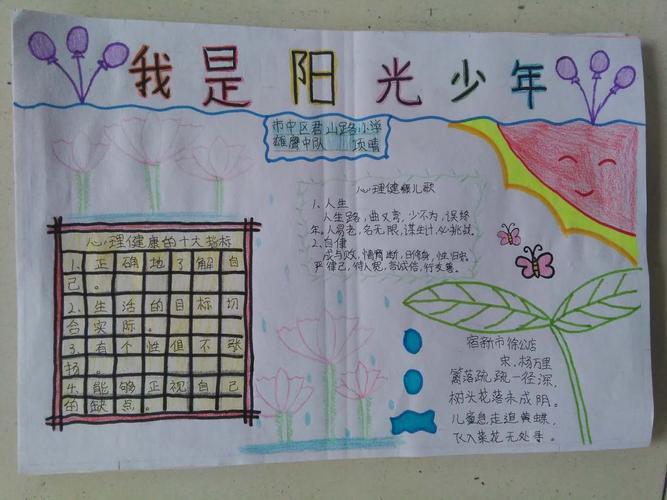 我是阳光少年
市中区君山路小学
雄鹰中队 项晴
心理健康儿歌
1、人生
人生路,曲又弯,少不为,误终
年。人易老,名无限,谋生计,必挑战。
2、自健
成与败,情莫断,日修身,性归宗。
严律己,待人宽,言诚信,行友善。
心理健康的十大指标
1、正确地了解自
己。
2、生活的目标切
合实际。
3、有个性但不张
扬。
4、能够正视自己
的缺点。
宿新市徐公店
宋、杨万里
篱落疏疏一径深,
树头花落未成阴。
儿童急走追黄蝶,
飞入菜花无处寻。